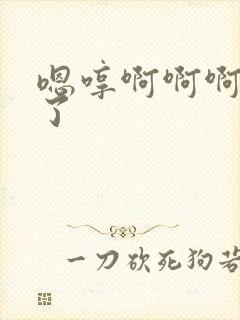 嗯哼啊啊啊
了
一刀砍死狗若